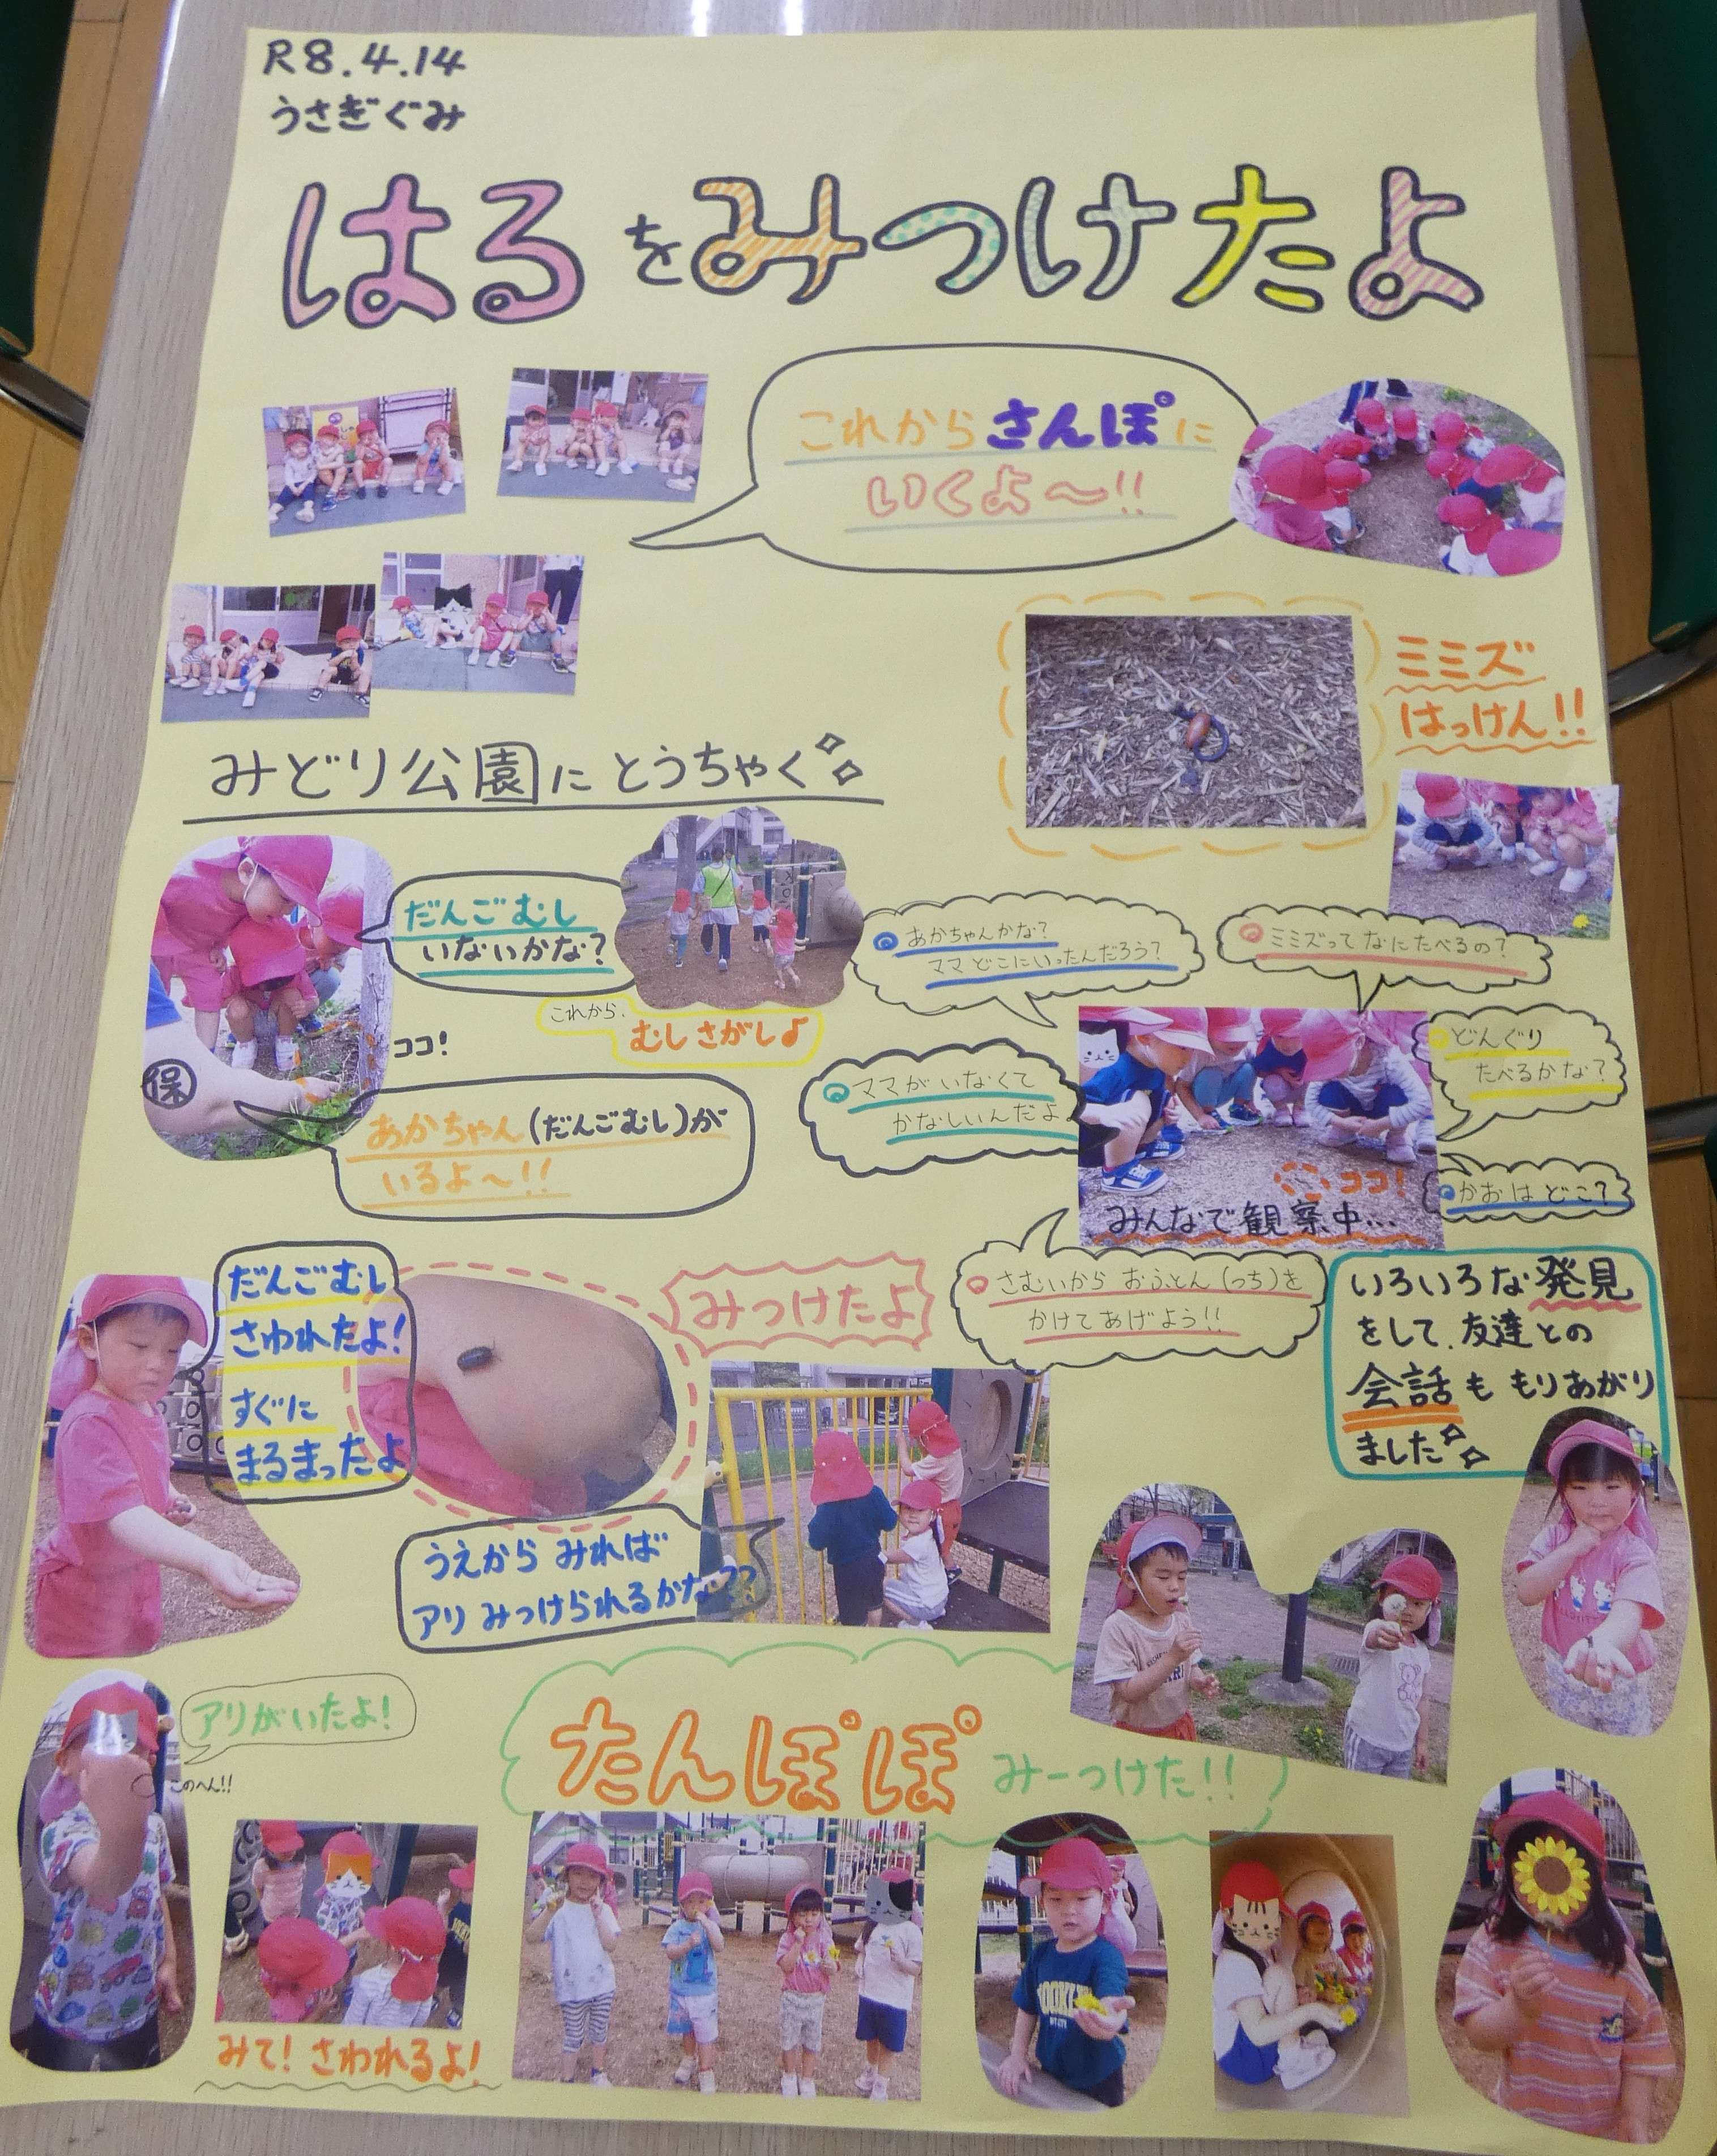 R8.4.14
うさぎぐみ
はるをみつけたよ
これからさんぽに
いくよ～!!
ミミズ
はっけん!!
みどり公園にとうちゃく
だんごむし
いないかな?
これから
むしさがし♪
ココ!
保
あかちゃん(だんごむし)が
いるよ～!!
あかちゃんかな?
ママどこにいったんだろう?
ミミズってなにたべるの?
ママがいなくて
かなしいんだよ
どんぐり
たべるかな?
かおはどこ?
ココ!
みんなで観察中…
さむいからおふとん(つち)を
かけてあげよう!!
いろいろな発見
をして、友達との
会話ももりあがり
ました
だんごむし
さわれたよ!
すぐに
まるまったよ
みつけたよ
うえからみれば
アリみつけられるかな??
アリがいたよ!
このへん!!
たんぽぽみーつけた!!
みて!さわれるよ!